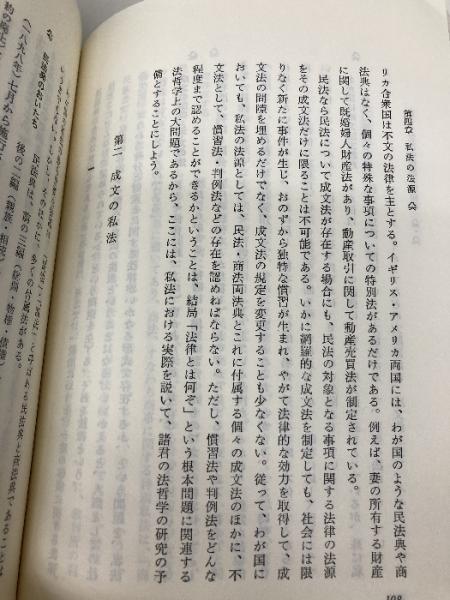 第四章 私法の法源
リカ合衆国は不文の法律を主とする。イギリス・アメリカ両国には、わが国のような民法典や商
法典はなく、個々の特殊な事項についての特別法があるだけである。例えば、妻の所有する財産
に関して既婚婦人財産法があり、動産取引に関して動産売買法が制定されている。
民法なら民法について成文法が存在する場合にも、民法の対象となる事項に関する法律の法源
をその成文法だけに限ることは不可能である。いかに網羅的な成文法を制定しても、社会には限
りなく新たに事件が生じ、おのずから独特な慣習が生まれ、やがて法律的な効力を取得して、成
文法の間隙を埋めるだけでなく、成文法の規定を変更することも少なくない。従って、わが国に
おいても、私法の法源としては、民法・商法両法典とこれに付属する個々の成文法のほかに、不
文法として、慣習法・判例法などの存在を認めねばならない。ただし、慣習法や判例法をどんな
程度まで認めることができるかということは、結局「法律とは何ぞ」という根本問題に関連する
法哲学上の大問題であるから、ここには、私法における実際を説いて、諸君の法哲学の研究の予
備とすることにしよう。
第二 成文の私法
一
民法典のおいたち
後の二編(親族・相続)
108